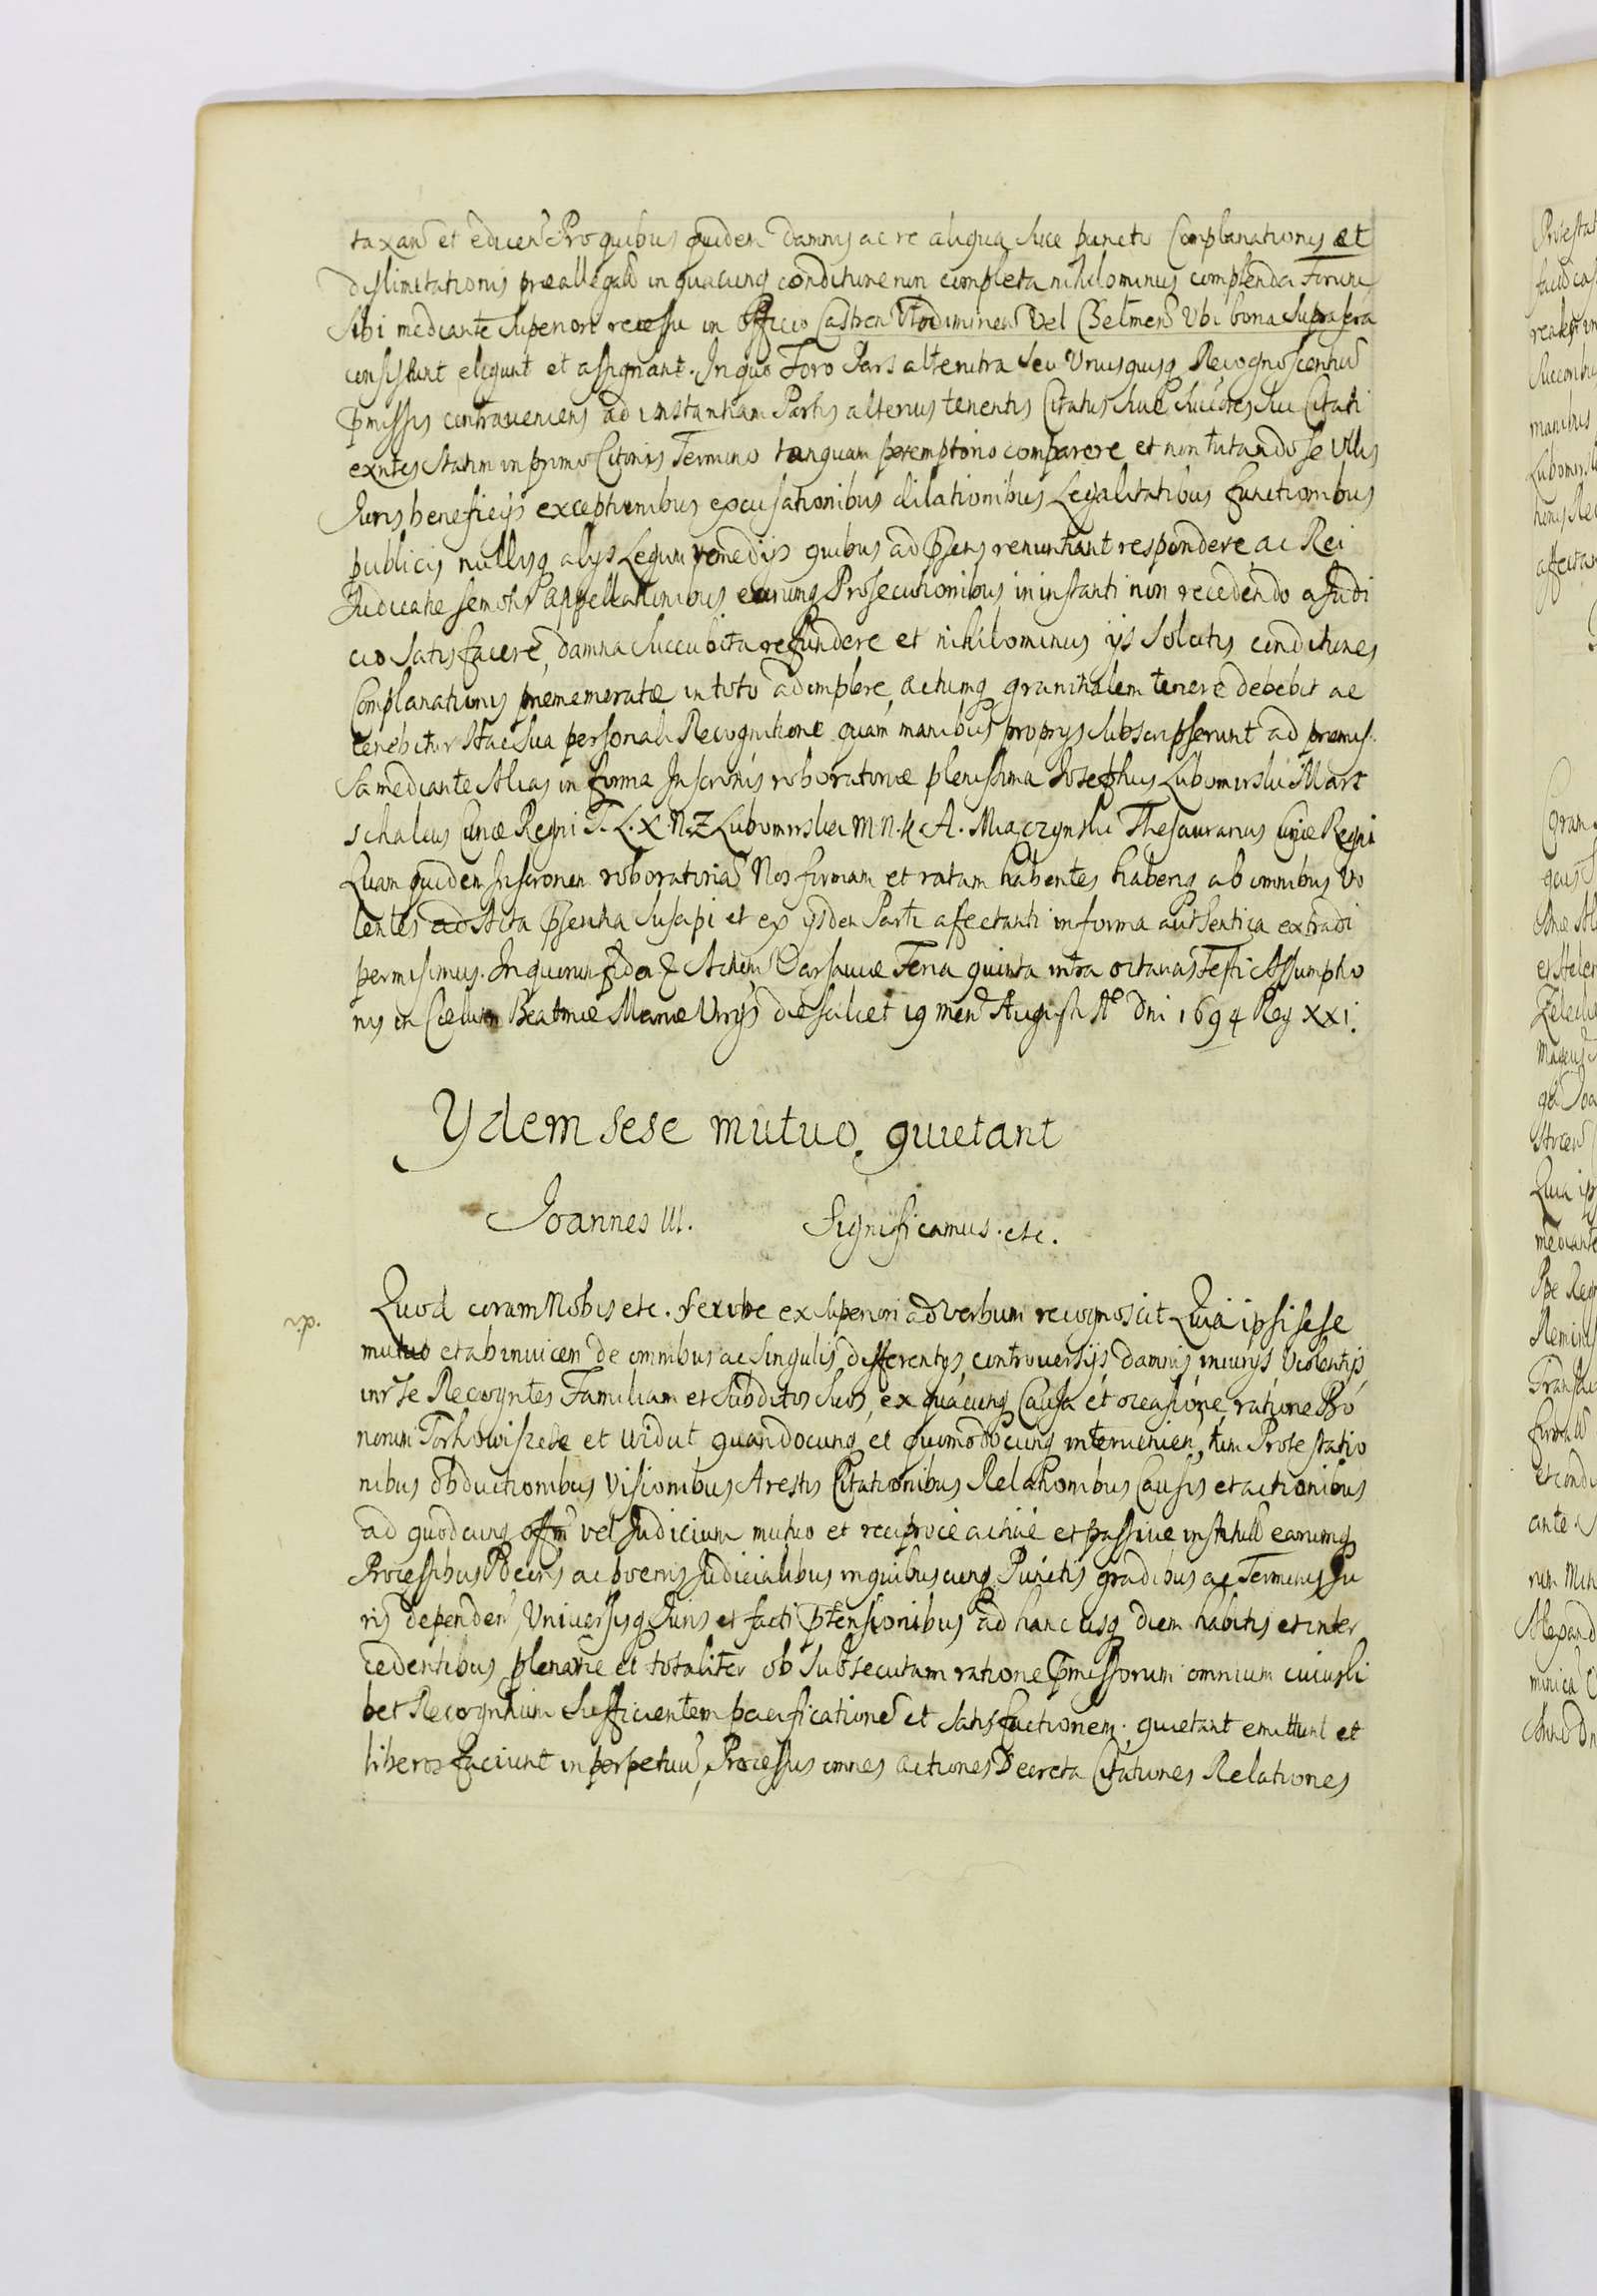 taxan et educen Pro quibus quidem damnis ac re aliqua suce puncto Complanationis et
dislimitationis præallegatt in quacunq conditione non completa nihilominus complenda Forum
Sibi mediante Superiori recessu in Officio Castren Vlodimirien vel Chelmen Vbi bona Suprascra
consistunt eligunt et assignant. In quo Foro Pars alterutra Seu Vnusquisq Recognoscentiu
pmissis contraueniens ad instantiam Partis alterius tenentis Citatus siue Succres sui Citati
exntes statim in primo Citonis Termino tanquam peremptorio comparere et non tutando se Vllis
Juris beneficijs exceptionibus excusationibus dilationibus Legalitatibus functionibus
publicis nullisq alijs Legum remedijs quibus ad psens renuntiant respondere, ac Rei
Judicatæ semotis appellationibus earumq Prosecutionibus in instanti non recedendo a Judi
cio Satisfacere, damna Succubita refundere et nihilominus ijs Solutis conditiones
Complanationis prememoratæ in toto adimplere, actumq granitialem tenere debebit ac
tenebitur Hac Sua personali Recognitione quam manibus proprijs Subscripserunt ad premis
sa mediante Alias in forma Inscronis roboratoriæ plenissima Josephus Lubomirski Mars
schalcus Curiæ Regni T. L. X. N. Z Lubomirska M. N. K A. Miączynski Thesaurarius Curiæ Regni
Quam quidem Inscronem roboratoria Nos firmam et ratam habentes haberiq ab omnibus Vo
lentes ad Acta psentia Suscipi et ex ijsdem Parti afectanti in forma authentica extradi
permisimus. In quorum fidem & Actum Varsauiæ Feria quinta intra octauas Festi Assumptio
nis in Cœlum Beatmæ Mariæ Vrgs die scilicet 19 men Augusti Ao Dni 1694 Reg XXI.
Ydem sese mutuo quietant
Joannes III. Significamus. etc.
Quod coram Nobis etc. Scribe ex Superiori ad verbum recognoscit Quia ipsi sese
mutuo et ab inuicem de omnibus ac Singulis differentijs, controuersijs, damnis, iniurijs, violentijs
intr se Recogntes Familiam et Subditos Suos, ex quacunq Causa et occasione, ratione Bo
norum Torhowiszcze et Widut quandocunq et quomodocunq interuenien, tum Protestatio
nibus obductionibus Visionibus Arestis Citationibus Relationibus Causis et actionibus
ad quodcunq offm vel Judicium mutuo et reciproce actiue et passiue institutt earumq
Processibus Decris ac poenis Judicialibus in quibuscunq Punctis gradibus ac Terminis Ju
ris dependen, Vniuersisq Juris et facti ptensionibus ad hanc usq diem habitis et inter
cedentibus plenarie et totaliter ob Subsecutam ratione pmissorum omnium cuiusli
bet Recogntium Sufficientem pacificatione et Satisfactionem quietant emittunt et
liberos faciunt in perpetuu, Processus omnes actiones Decreta Citationes Relationes